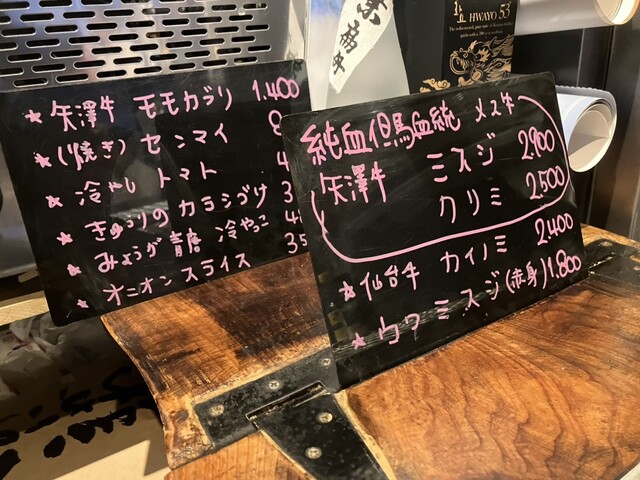 ★ 矢澤牛 モモカブリ 1.400
★(焼き) センマイ 8
★ 冷やし トマト 4
★ きゅうりのカラシづけ 3
★ みょうが青唐 冷やっこ 4
★ オニオンスライス 35
純血但馬血統 メス牛
矢澤牛 ミスジ 2.900
クリミ 2.500
★仙台牛 カイノミ 2.400
★ウワミスジ(赤身)1.800
HWAYO 53